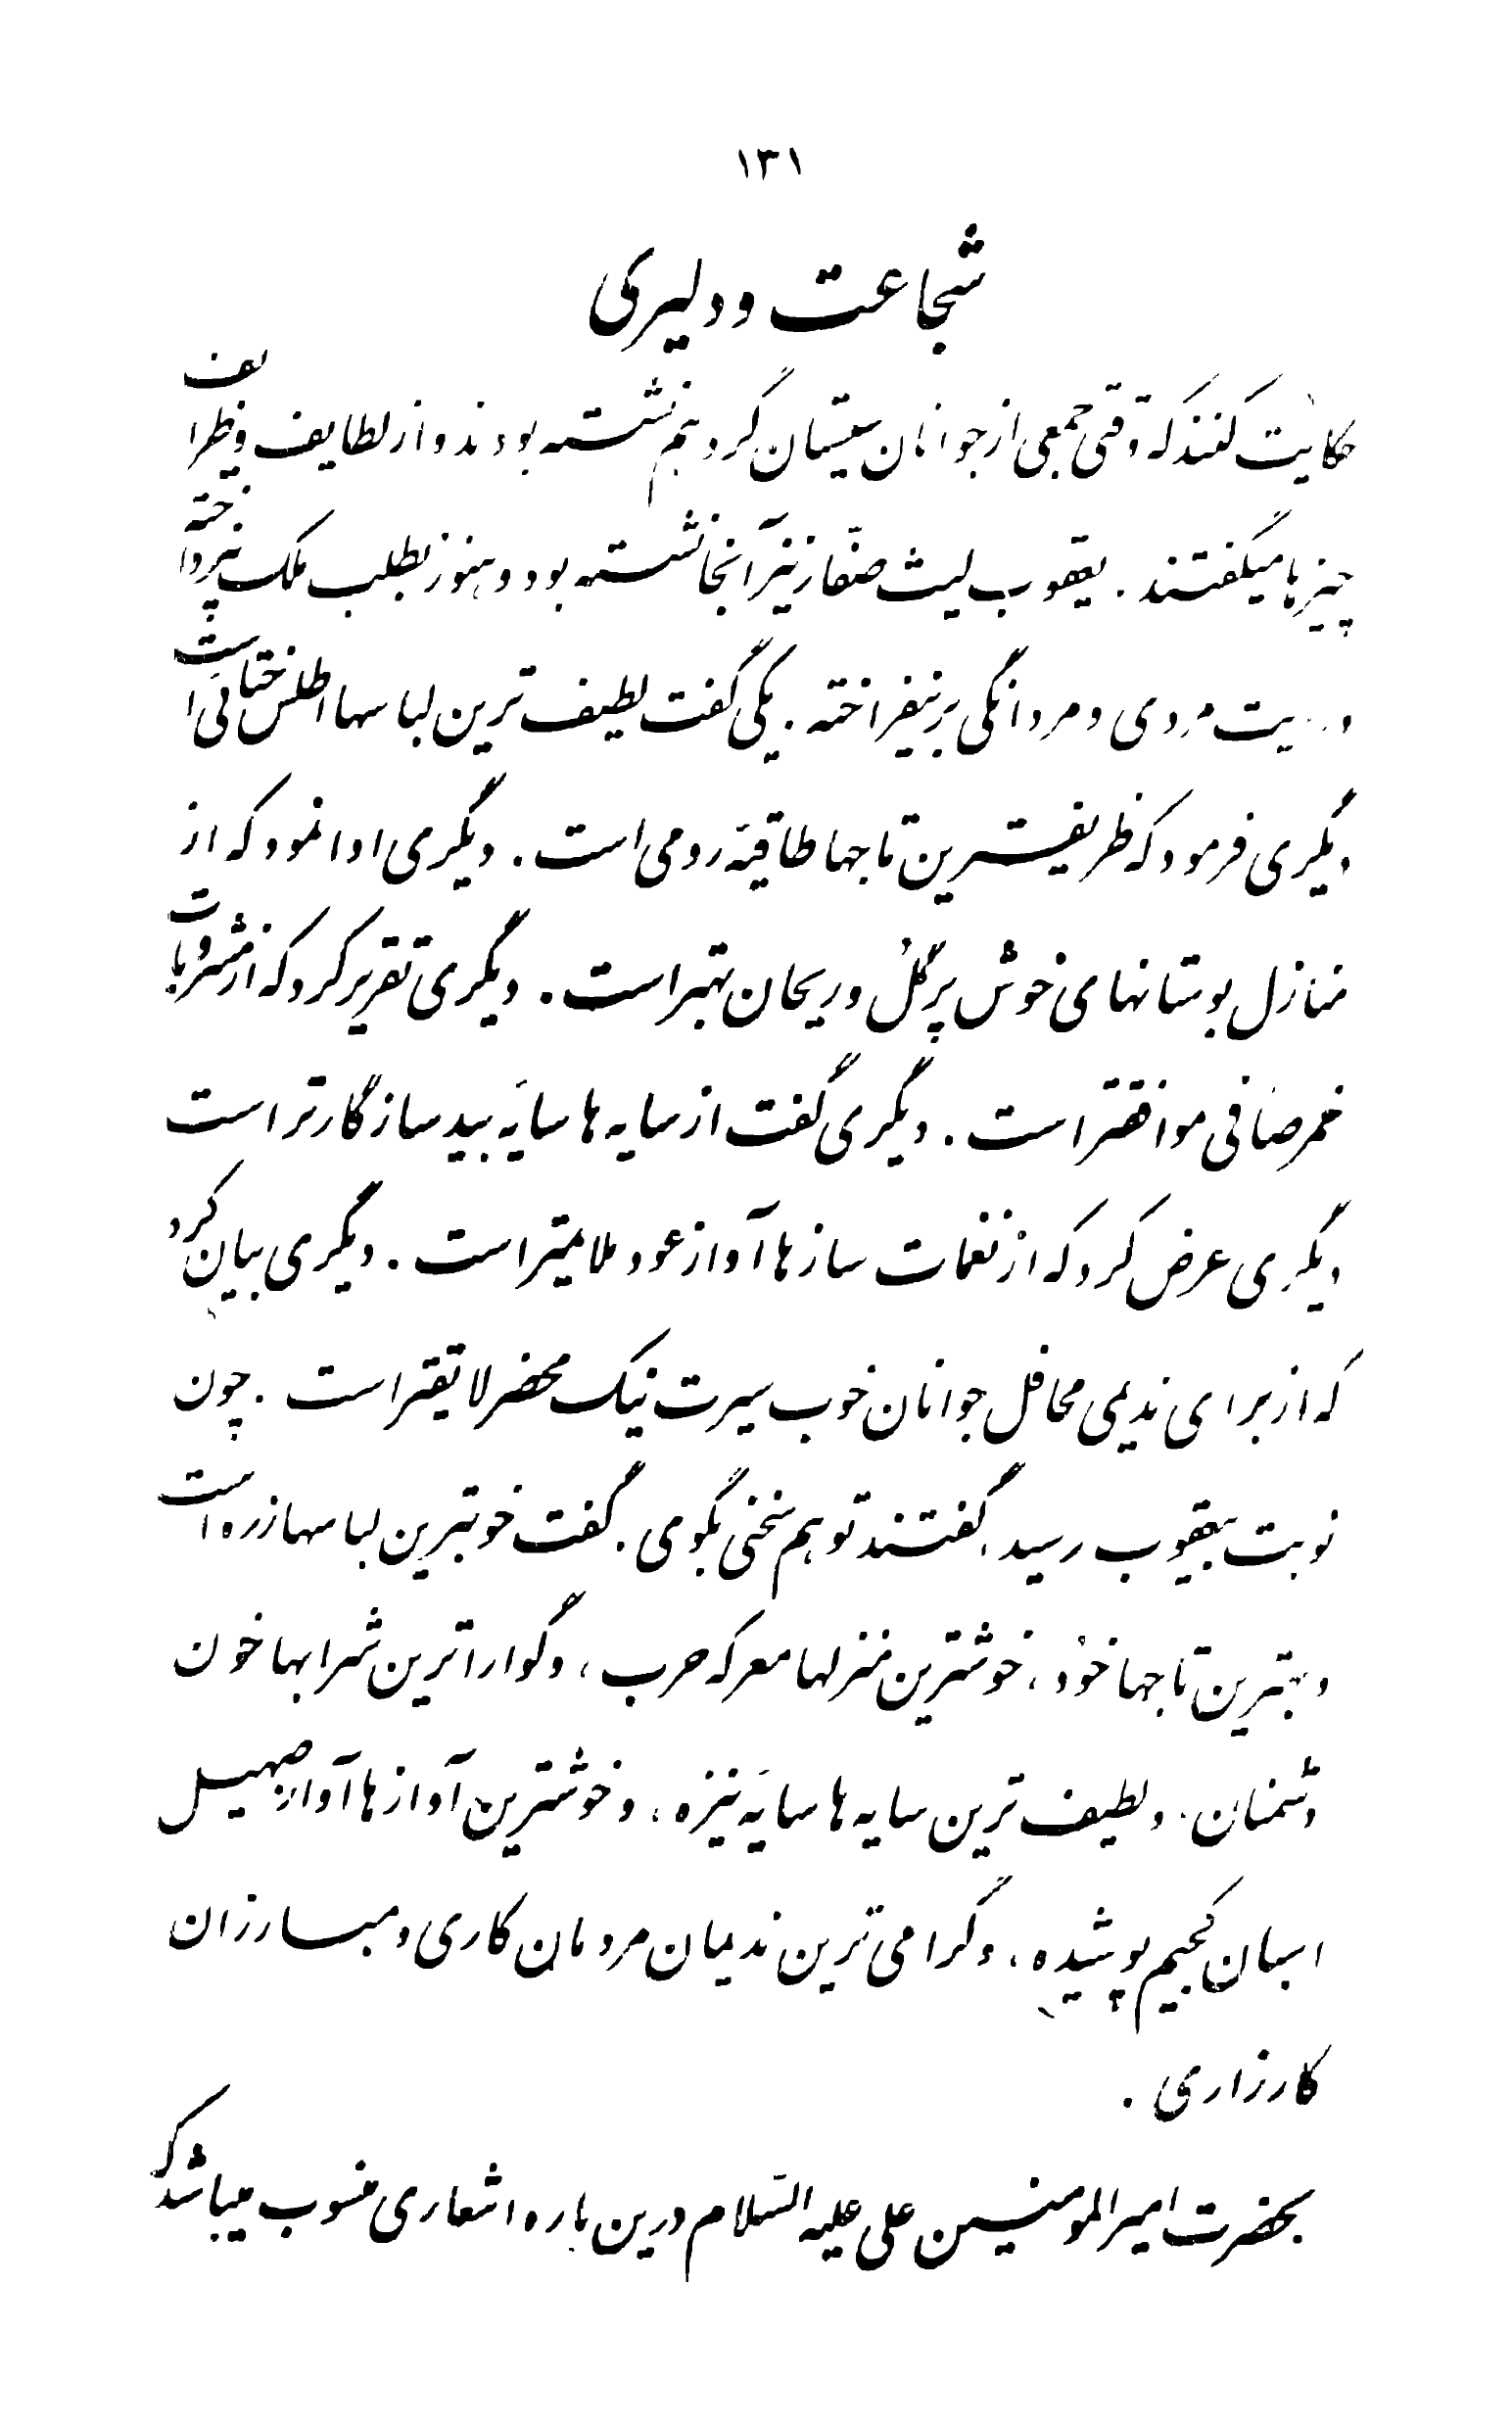 ۱۳۱
شجاعت و دلیری
حکایت کنند که وقتی جمعی از جوانان سیستان گرد هم نشسته بودند و از لطایف و ظرایف
چیزها میگفتند . یعقوب لیث صفّار نیز آنجا نشسته بود و هنوز بطلب ملک نپرداخته
و رایت مردی و مردانگی برنیفراخته . یکی گفت لطیف ترین لباسها اطلس ختائی است
دیگری فرمود که ظریفترین تاجها طاقیهٔ رومی است . دیگری ادا نمود که از
منازل بوستانهای خوش پر گل و ریحان بهتر است . دیگری تقریر کرد که از مشروبات
خمر صافی موافقتر است . دیگری گفت از سایه ها سایهٔ بید سازگارتر است
دیگری عرض کرد که از نغمات سازها آواز عود ملایمتر است . دیگری بیان کرد
که از برای ندیمی محافل جوانان خوب سیرت نیک محضر لایقتر است . چون
نوبت بیعقوب رسید ، گفتند تو هم سخنی بگوی . گفت خوبترین لباسها زره است
و بهترین تاجها خود ، خوشترین منزلها معرکه حرب ، و گواراترین شرابها خون
دشمنان . و لطیف ترین سایه ها سایهٔ نیزه ، و خوشترین آوازها آواز صهیل
اسبان کجیم پوشیده ، و گرامی ترین ندیمان مردمان کاری و مبارزان
کارزاری .
بحضرت امیرالمومنین علی علیه السّلام درین باره اشعاری منسوب میباشد که